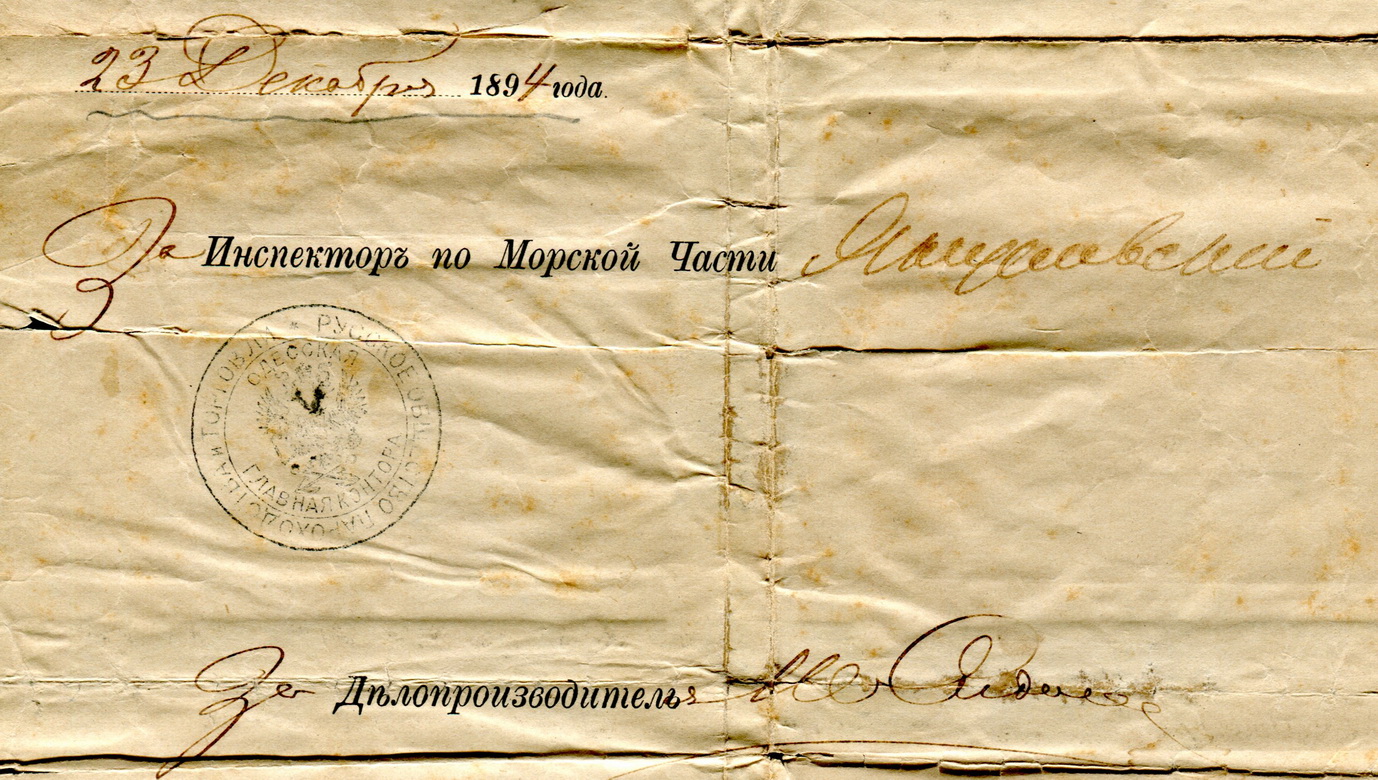 23 Декабря 1894 года.
За Инспекторъ по Морской Части
РУССКОЕ ОБЩЕСТВО ПАРОХОДСТВА И ТОРГОВЛИ
ОДЕССКАЯ
ГЛАВНАЯ КОНТОРА
За Дѣлопроизводителья